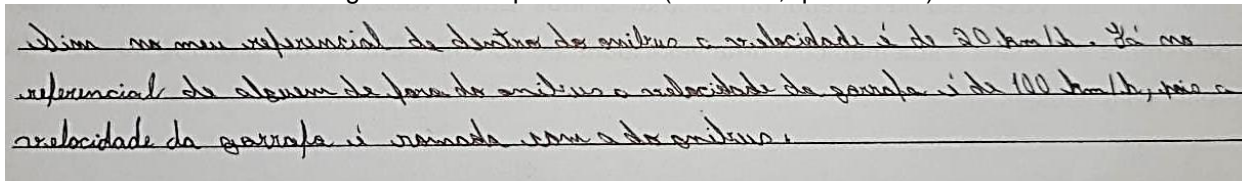 Sim no meu referencial de dentro do onibus a velocidade é de 20 km/h. Já no
referencial de alguem de fora do onibus a velocidade da garrafa é de 100 km/h, pois a
velocidade da garrafa é somada com a do onibus.